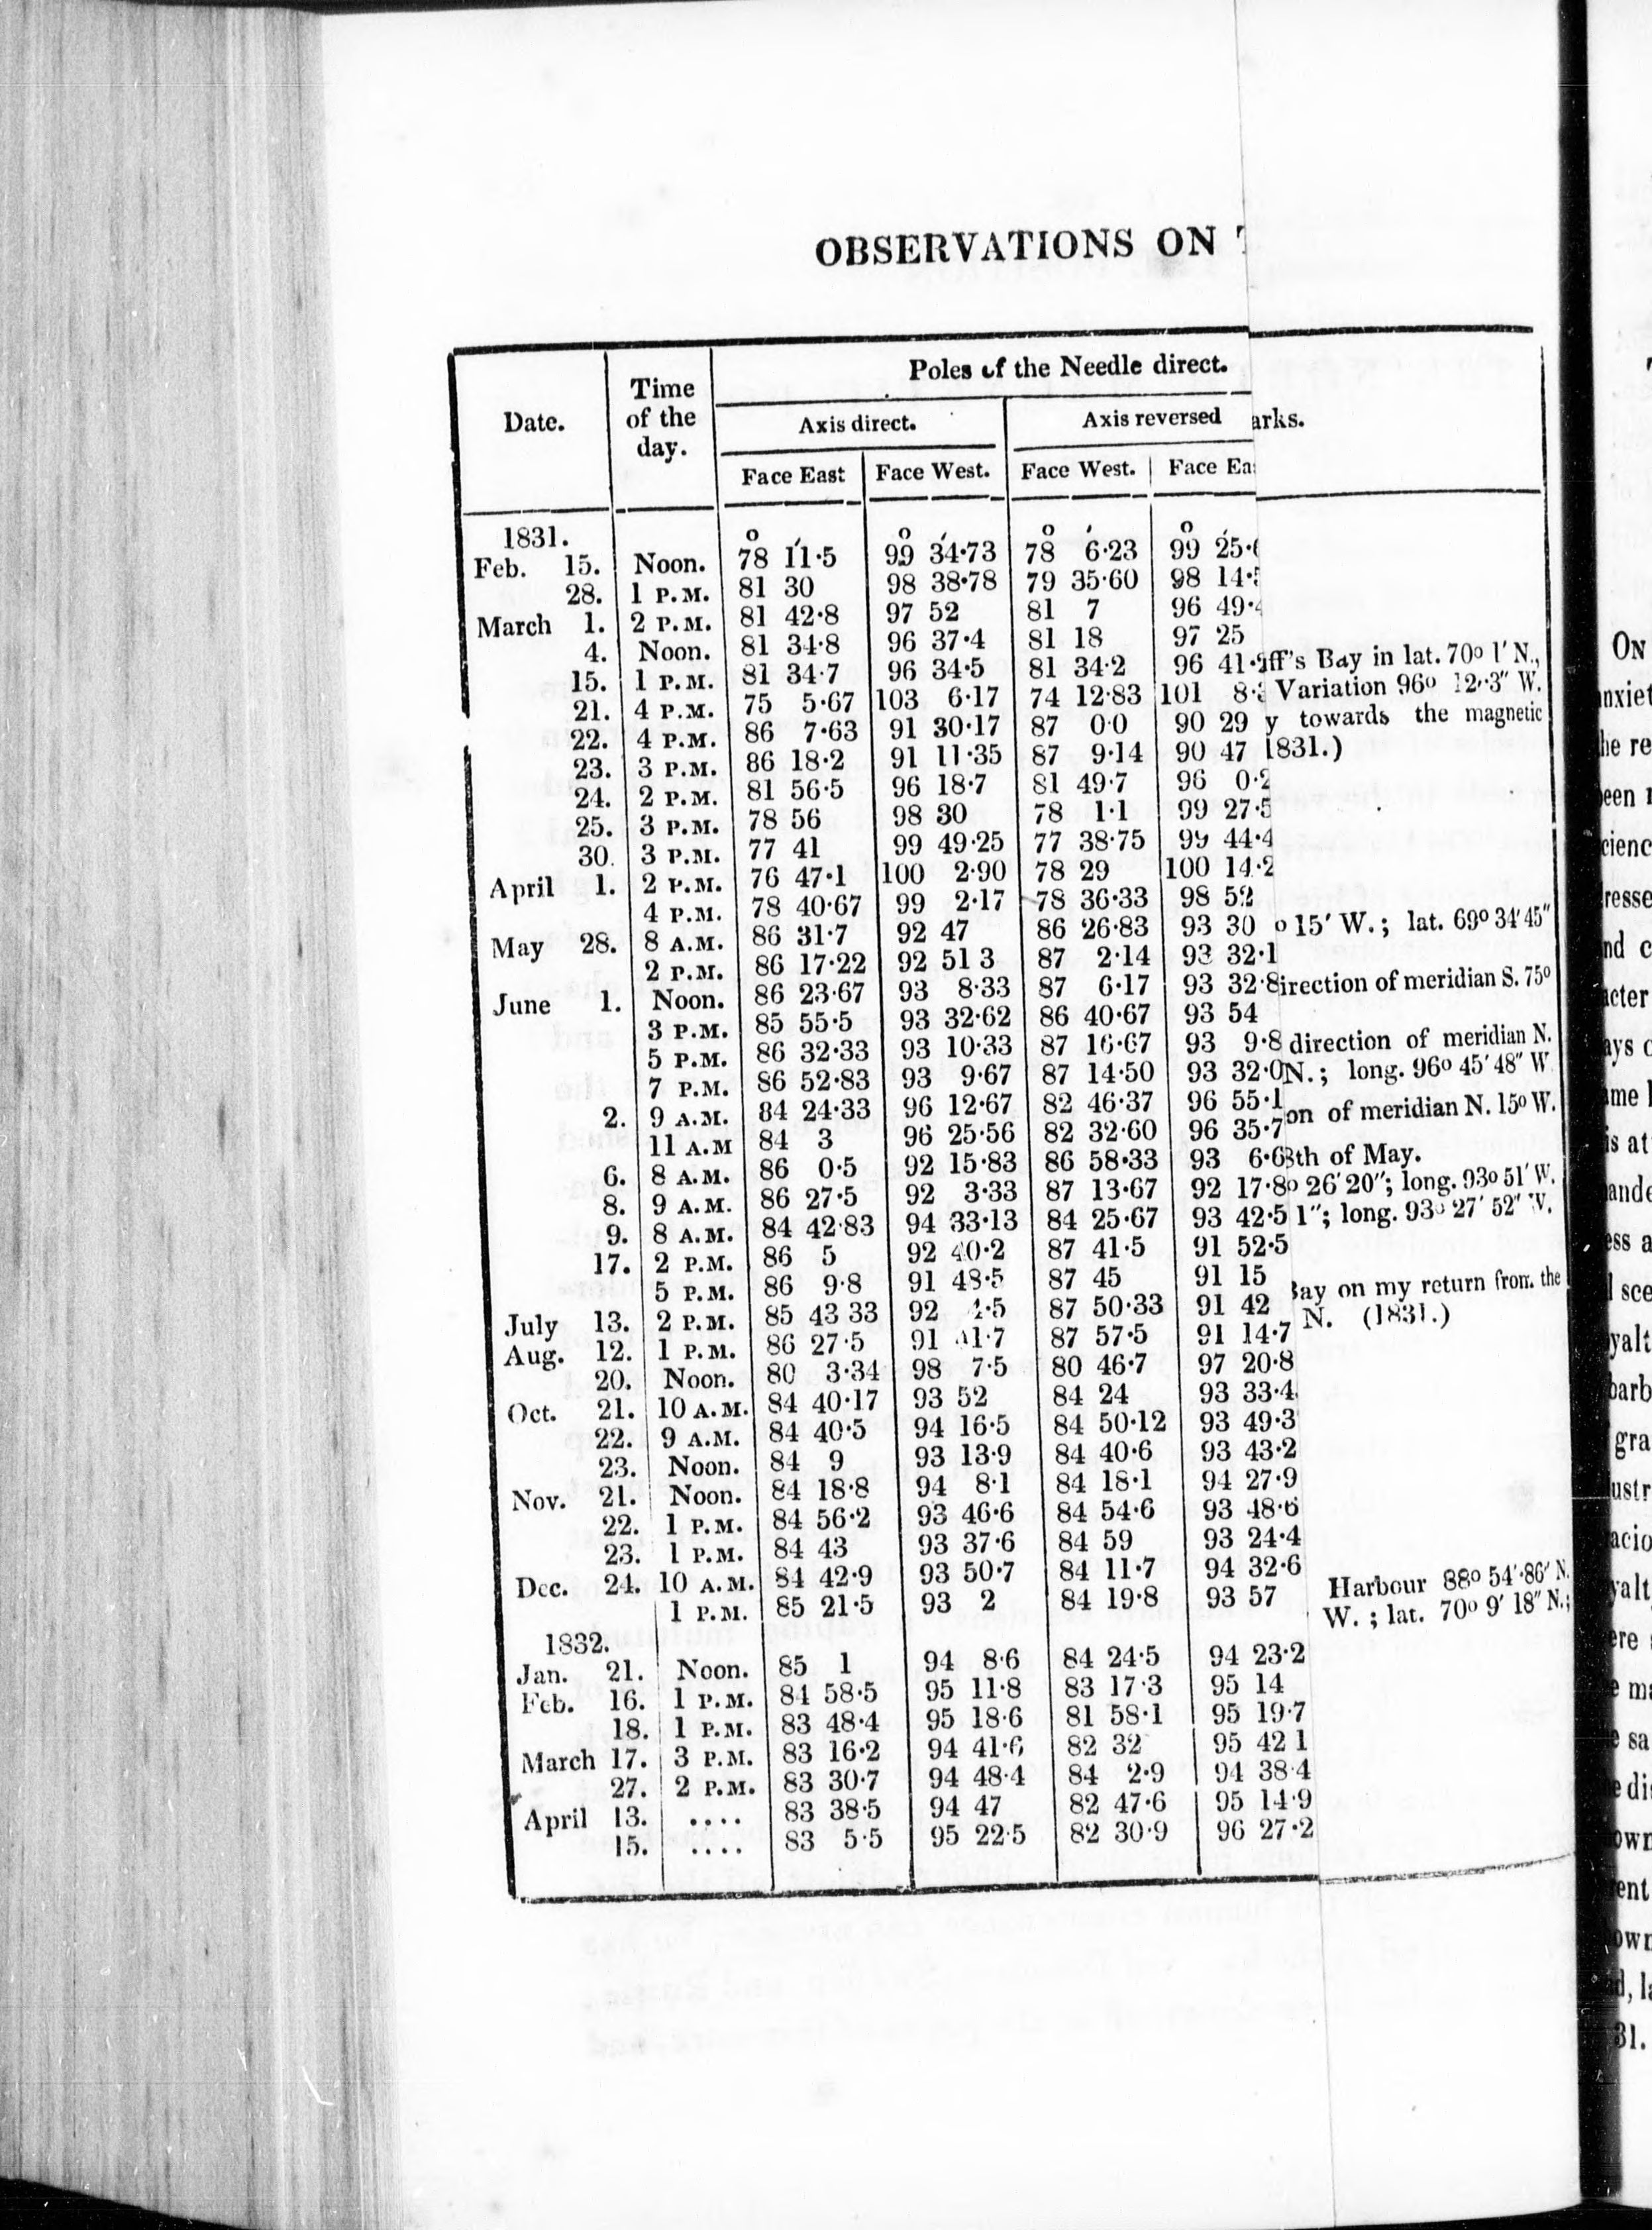 OBSERVATIONS ON
Poles of the Needle direct.
Date. Time of the day. Axis direct. Axis reversed arks.
Face East Face West. Face West. Face Ea
1831. o ′ o ′ o ′ o ′
Feb. 15. Noon. 78 11·5 99 34·73 78 6·23 99 25·
28. 1 P.M. 81 30 98 38·78 79 35·60 98 14·
March 1. 2 P.M. 81 42·8 97 52 81 7 96 49·
4. Noon. 81 34·8 96 37·4 81 18 97 25
15. 1 P.M. 81 34·7 96 34·5 81 34·2 96 41· iff's Bay in lat. 70o 1′ N.,
21. 4 P.M. 75 5·67 103 6·17 74 12·83 101 8· Variation 96o 12··3″ W.
22. 4 P.M. 86 7·63 91 30·17 87 0·0 90 29 y towards the magnetic
23. 3 P.M. 86 18·2 91 11·35 87 9·14 90 47 1831.)
24. 2 P.M. 81 56·5 96 18·7 81 49·7 96 0·2
25. 3 P.M. 78 56 98 30 78 1·1 99 27·5
30. 3 P.M. 77 41 99 49·25 77 38·75 99 44·4
April 1. 2 P.M. 76 47·1 100 2·90 78 29 100 14·2
4 P.M. 78 40·67 99 2·17 78 36·33 98 52
May 28. 8 A.M. 86 31·7 92 47 86 26·83 93 30 o 15′ W.; lat. 69o 34′ 45″
2 P.M. 86 17·22 92 51 3 87 2·14 93 32·1
June 1. Noon. 86 23·67 93 8·33 87 6·17 93 32·8 irection of meridian S. 75o
3 P.M. 85 55·5 93 32·62 86 40·67 93 54
5 P.M. 86 32·33 93 10·33 87 16·67 93 9·8 direction of meridian N.
7 P.M. 86 52·83 93 9·67 87 14·50 93 32·0 N.; long. 96o 45′ 48″ W
2. 9 A.M. 84 24·33 96 12·67 82 46·37 96 55·1 on of meridian N. 15o W.
11 A.M 84 3 96 25·56 82 32·60 96 35·7
6. 8 A.M. 86 0·5 92 15·83 86 58·33 93 6·6 8th of May.
8. 9 A.M. 86 27·5 92 3·33 87 13·67 92 17·8 o 26′ 20″; long. 93o 51′ W.
9. 8 A.M. 84 42·83 94 33·13 84 25·67 93 42·5 1″; long. 93o 27′ 52″ W.
17. 2 P.M. 86 5 92 40·2 87 41·5 91 52·5
5 P.M. 86 9·8 91 48·5 87 45 91 15 Bay on my return from the
July 13. 2 P.M. 85 43 33 92 4·5 87 50·33 91 42 N. (1831.)
Aug. 12. 1 P.M. 86 27·5 91 41·7 87 57·5 91 14·7
20. Noon. 80 3·34 98 7·5 80 46·7 97 20·8
Oct. 21. 10 A.M. 84 40·17 93 52 84 24 93 33·4
22. 9 A.M. 84 40·5 94 16·5 84 50·12 93 49·3
23. Noon. 84 9 93 13·9 84 40·6 93 43·2
Nov. 21. Noon. 84 18·8 94 8·1 84 18·1 94 27·9
22. 1 P.M. 84 56·2 93 46·6 84 54·6 93 48·6
23. 1 P.M. 84 43 93 37·6 84 59 93 24·4
Dec. 24. 10 A.M. 84 42·9 93 50·7 84 11·7 94 32·6 Harbour 88o 54′·86′ N.
1 P.M. 85 21·5 93 2 84 19·8 93 57 W.; lat. 70o 9′ 18″ N.;
1832.
Jan. 21. Noon. 85 1 94 8·6 84 24·5 94 23·2
Feb. 16. 1 P.M. 84 58·5 95 11·8 83 17·3 95 14
18. 1 P.M. 83 48·4 95 18·6 81 58·1 95 19·7
March 17. 3 P.M. 83 16·2 94 41·6 82 32 95 42 1
27. 2 P.M. 83 30·7 94 48·4 84 2·9 94 38·4
April 13. .... 83 38·5 94 47 82 47·6 95 14·9
15. .... 83 5·5 95 22·5 82 30·9 96 27·2